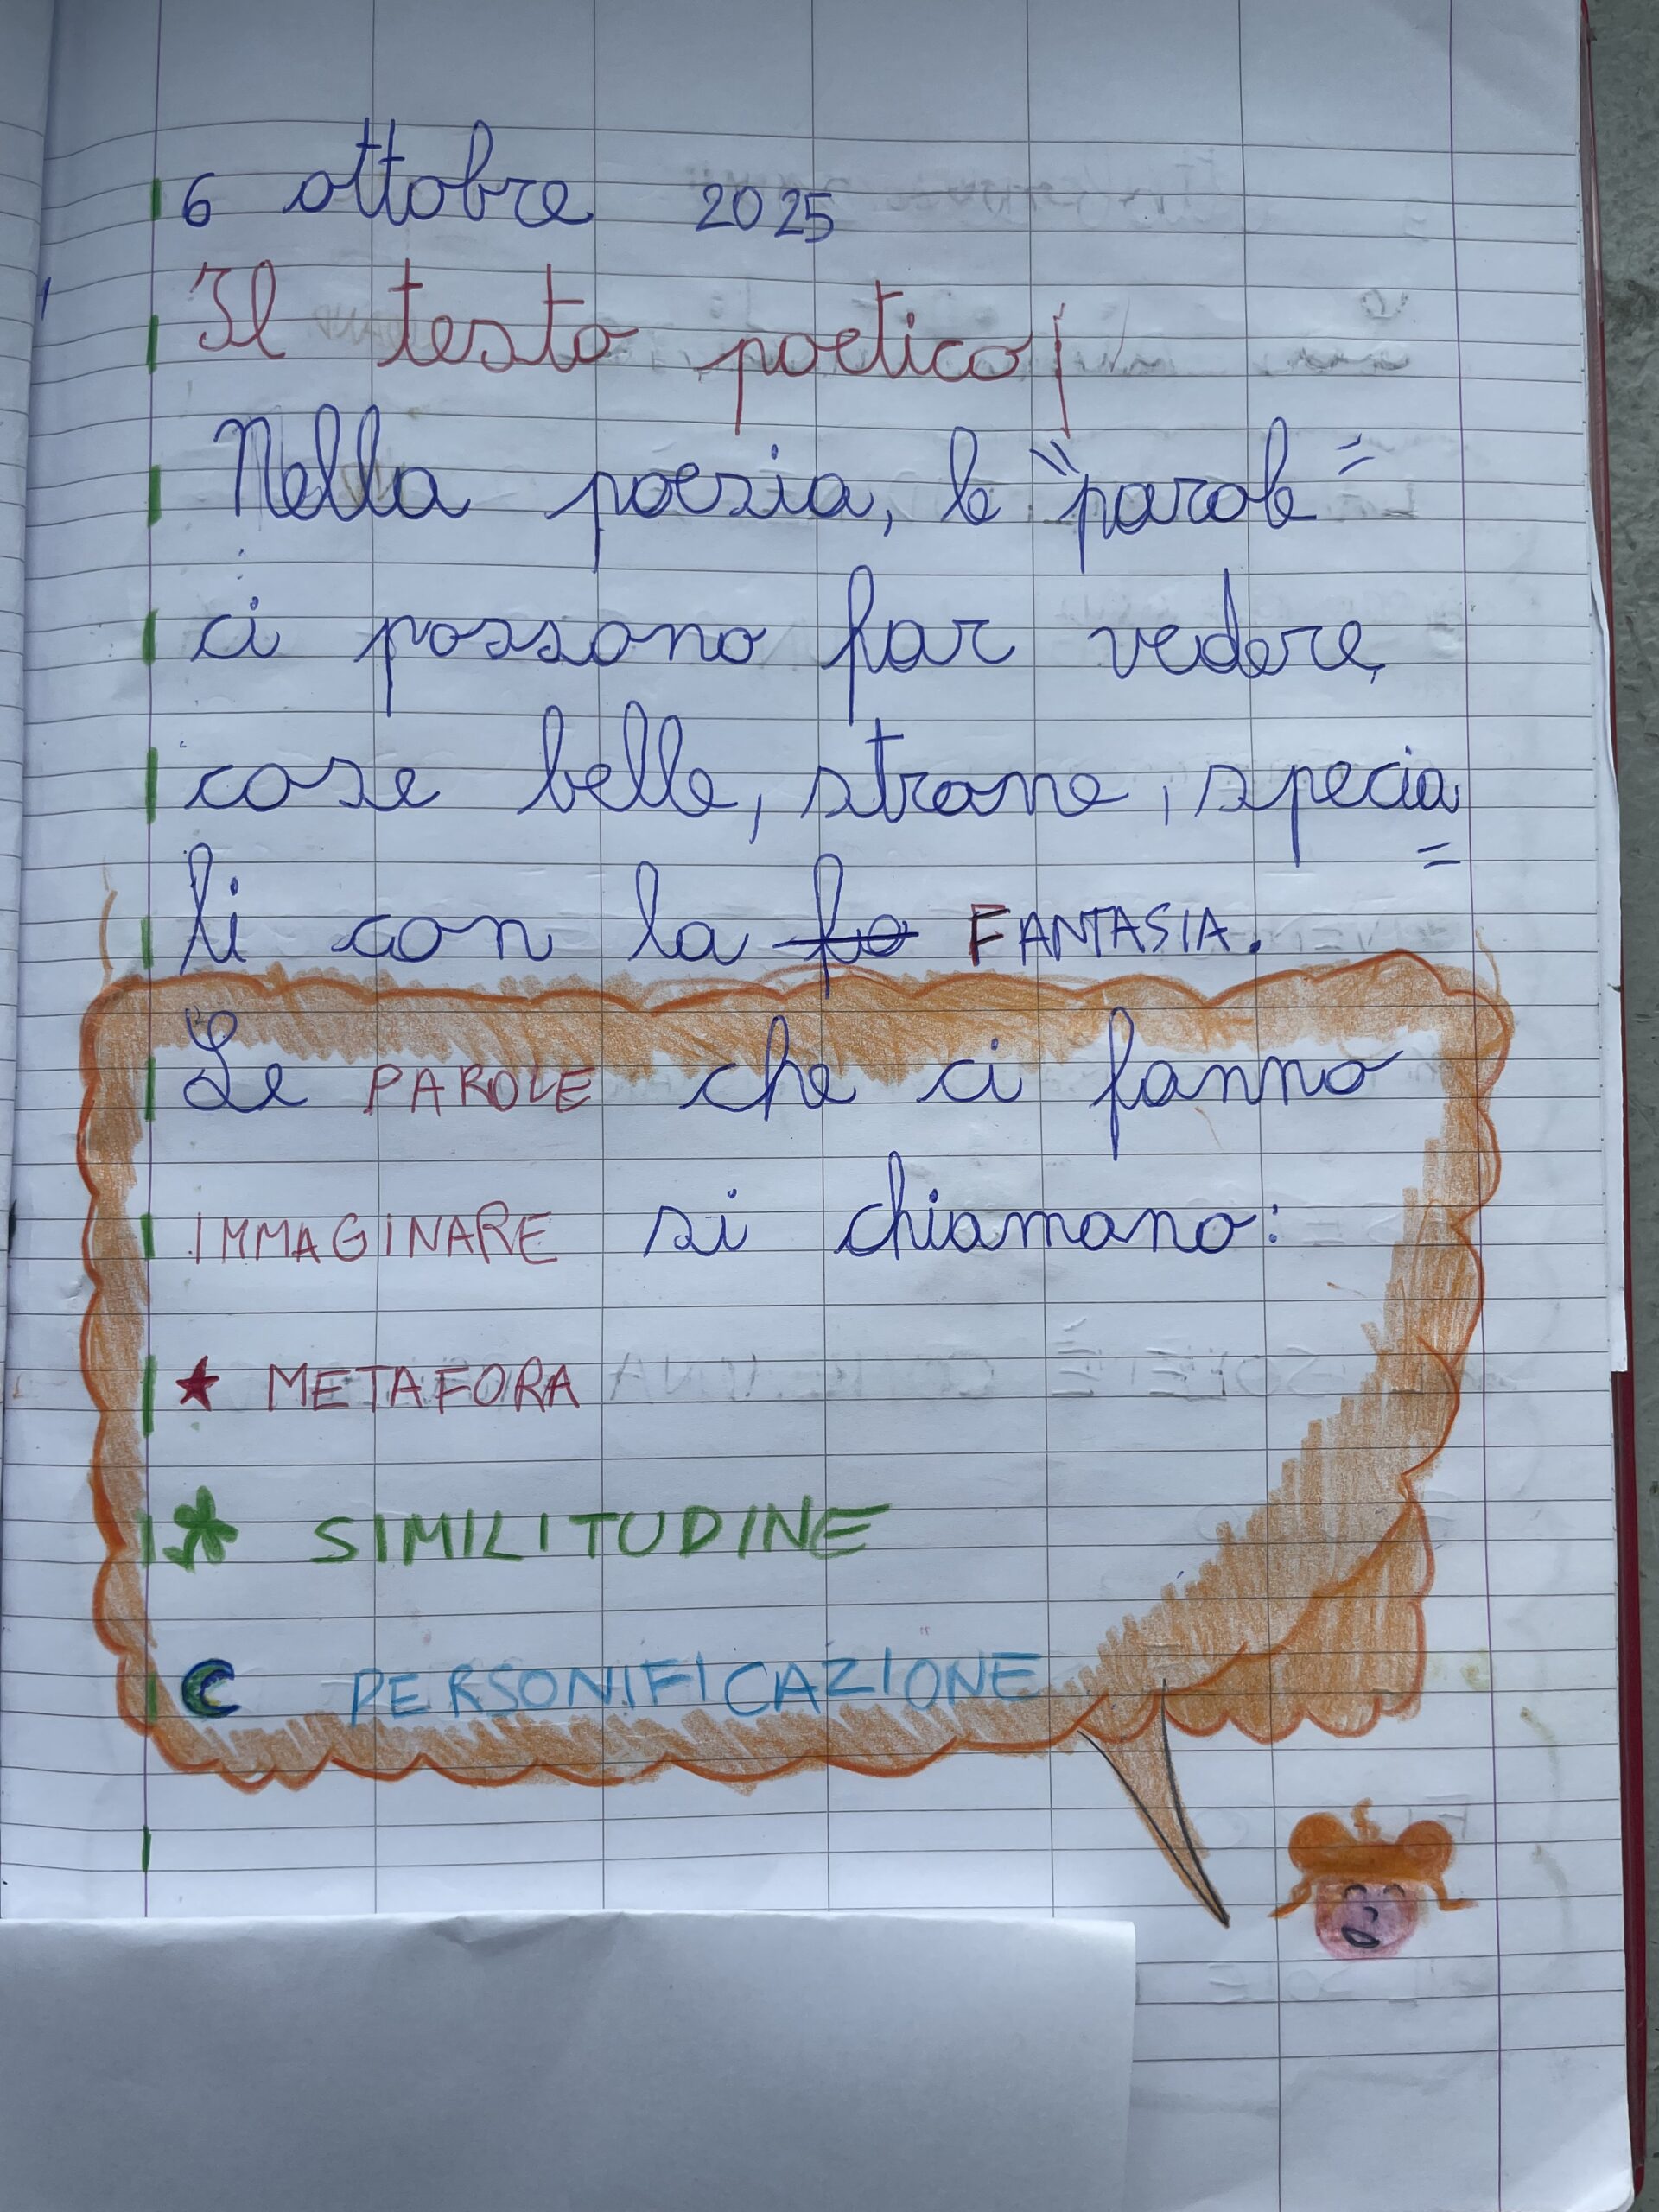 6 ottobre 2025
Il testo poetico
Nella poesia, le "parole"
ci possono far vedere,
cose belle, strane, specia=
li con la fa FANTASIA.
Le PAROLE che ci fanno
IMMAGINARE si chiamano:
METAFORA
SIMILITUDINE
PERSONIFICAZIONE